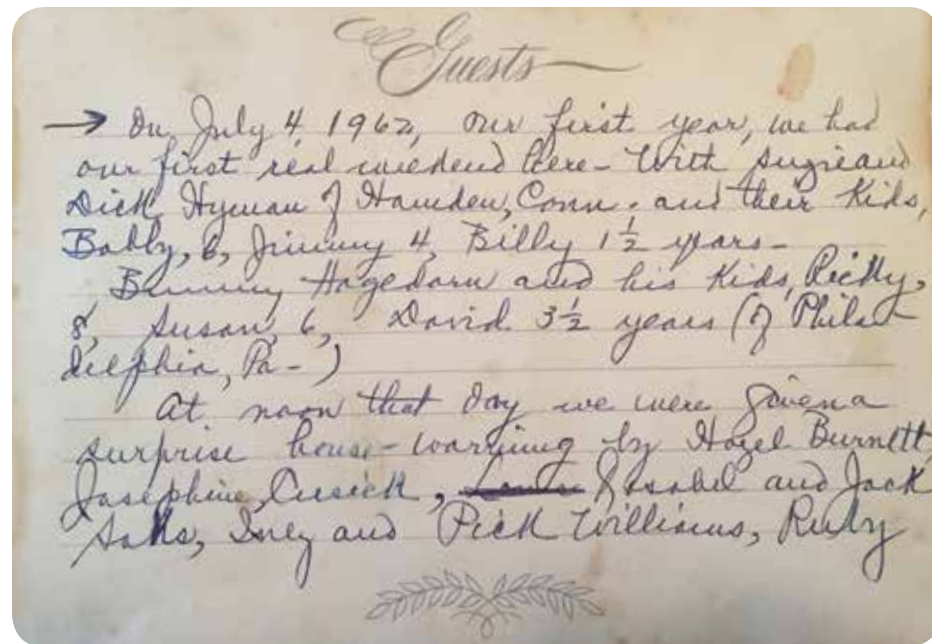 Guests
→ On July 4 1962, our first year, we had
our first real weekend here - With Suzie and
Dick Hyman of Hamden, Conn. and their Kids,
Bobby, 6, Jimmy 4, Billy 1½ years -
Bunny Hagedorn and his Kids, Ricky,
8, Susan, 6, David 3½ years (of Phila-
delphia, Pa - )
At noon that day we were given a
surprise house-warming by Hazel Burnett,
Josephine Cusick, & Isabel and Jack
Saks, Inez and Pick Williams, Ruby